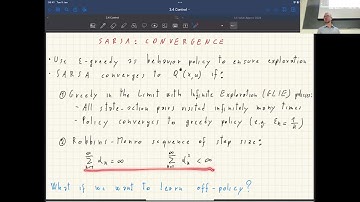 2.4 Control
SARSA: CONVERGENCE
• Use ε-greedy as behavior policy to ensure exploration
• SARSA converges to Q*(x,u) if:
① Greedy in the Limit with Infinite Exploration (GLIE) policies:
- All state-action pairs visited infinitely many times
- Policy converges to greedy policy (e.g. εₖ = 1/k)
② Robbins-Monro sequence of step size:
∞ ∑ k=1 αₖ = ∞ ∞ ∑ k=1 αₖ² < ∞
What if we want to learn off-policy?